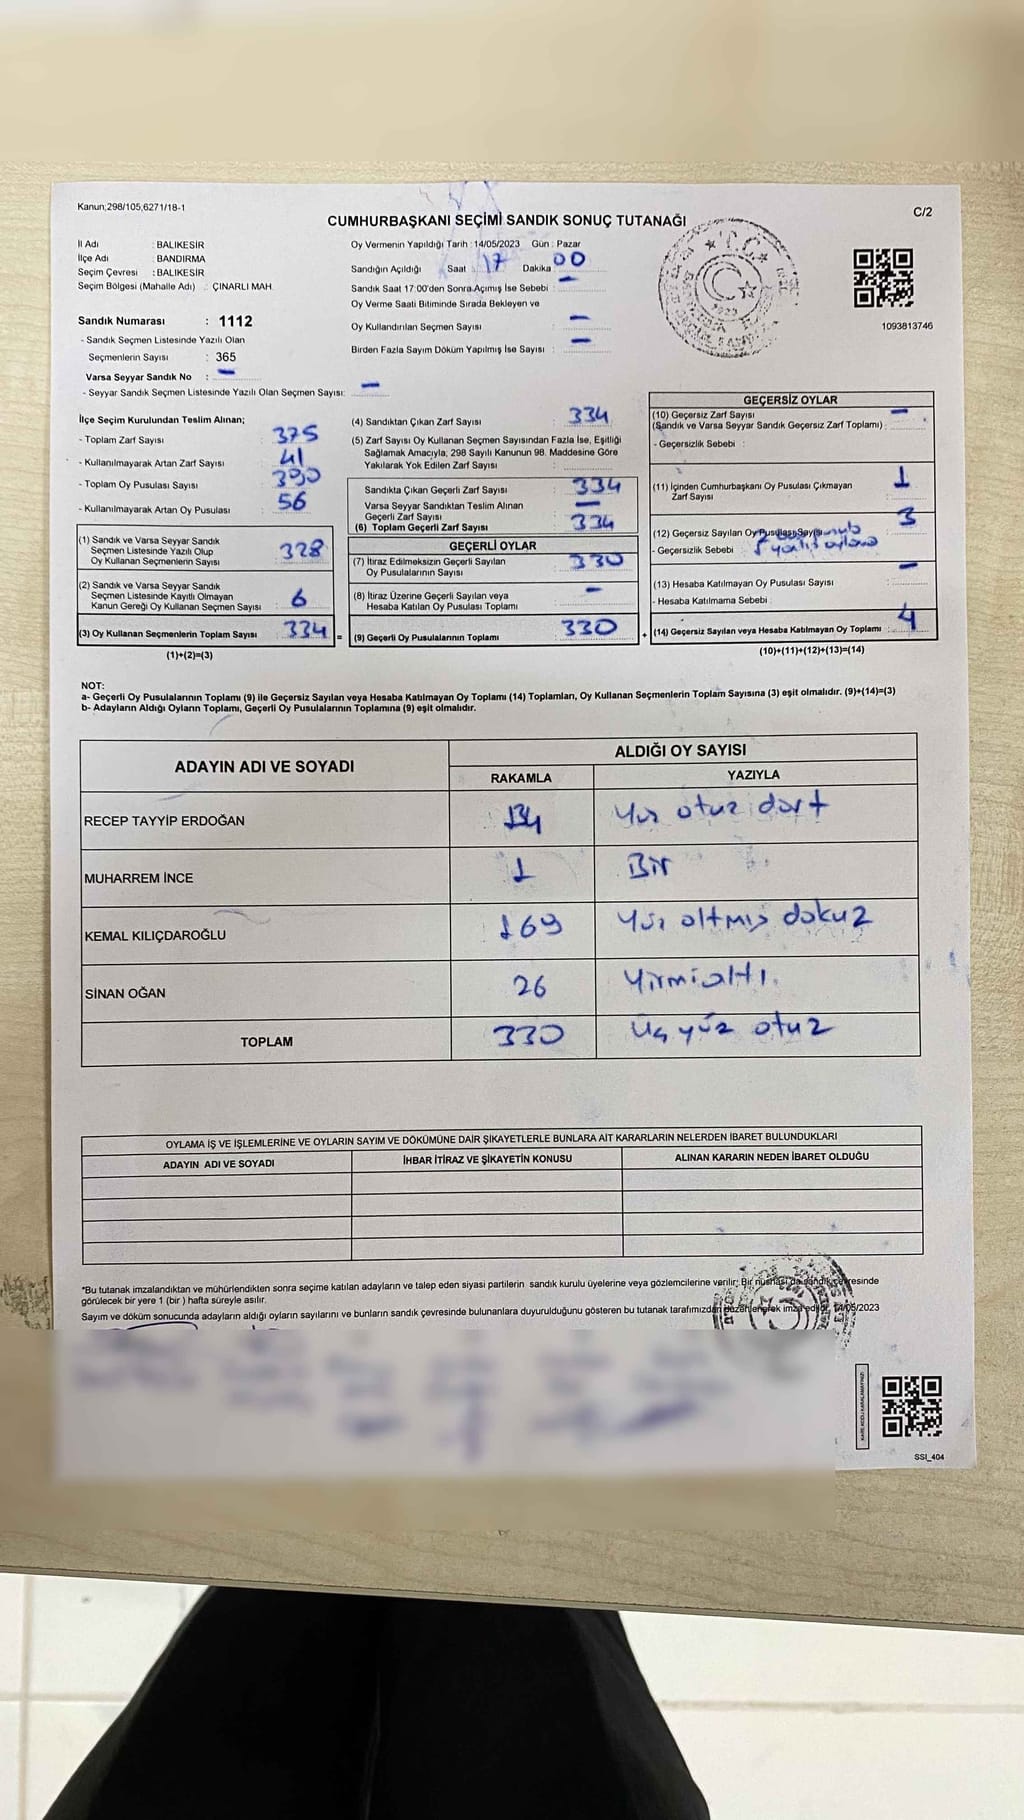 Kanun;298/105,6271/18-1
C/2
CUMHURBAŞKANI SEÇİMİ SANDIK SONUÇ TUTANAĞI
İl Adı : BALIKESİR
İlçe Adı : BANDIRMA
Seçim Çevresi : BALIKESİR
Seçim Bölgesi (Mahalle Adı) : ÇINARLI MAH.
Sandık Numarası : 1112
- Sandık Seçmen Listesinde Yazılı Olan
Seçmenlerin Sayısı : 365
Varsa Seyyar Sandık No : -
- Seyyar Sandık Seçmen Listesinde Yazılı Olan Seçmen Sayısı: -
Oy Vermenin Yapıldığı Tarih : 14/05/2023 Gün : Pazar
Sandığın Açıldığı Saat : 17 Dakika : 00
Sandık Saat 17:00'den Sonra Açımış İse Sebebi : -
Oy Verme Saati Bitiminde Sırada Bekleyen ve
Oy Kullandırılan Seçmen Sayısı : -
Birden Fazla Sayım Döküm Yapılmış İse Sayısı : -
T.C.
1093813746
İlçe Seçim Kurulundan Teslim Alınan;
- Toplam Zarf Sayısı : 375
- Kullanılmayarak Artan Zarf Sayısı : 41
- Toplam Oy Pusulası Sayısı : 390
- Kullanılmayarak Artan Oy Pusulası : 56
(1) Sandık ve Varsa Seyyar Sandık
Seçmen Listesinde Yazılı Olup
Oy Kullanan Seçmenlerin Sayısı : 328
(2) Sandık ve Varsa Seyyar Sandık
Seçmen Listesinde Kayıtlı Olmayan
Kanun Gereği Oy Kullanan Seçmen Sayısı : 6
(3) Oy Kullanan Seçmenlerin Toplam Sayısı : 334 =
(1)+(2)=(3)
(4) Sandıktan Çıkan Zarf Sayısı : 334
(5) Zarf Sayısı Oy Kullanan Seçmen Sayısından Fazla İse, Eşitliği
Sağlamak Amacıyla, 298 Sayılı Kanunun 98. Maddesine Göre
Yakılarak Yok Edilen Zarf Sayısı :
Sandıkta Çıkan Geçerli Zarf Sayısı : 334
Varsa Seyyar Sandıktan Teslim Alınan
Geçerli Zarf Sayısı : -
(6) Toplam Geçerli Zarf Sayısı : 334
GEÇERLİ OYLAR
(7) İtiraz Edilmeksizin Geçerli Sayılan
Oy Pusulalarının Sayısı : 330
(8) İtiraz Üzerine Geçerli Sayılan veya
Hesaba Katılan Oy Pusulası Toplamı : -
(9) Geçerli Oy Pusulalarının Toplamı : 330 +
GEÇERSİZ OYLAR
(10) Geçersiz Zarf Sayısı
(Sandık ve Varsa Seyyar Sandık Geçersiz Zarf Toplamı) : -
- Geçersizlik Sebebi :
(11) İçinden Cumhurbaşkanı Oy Pusulası Çıkmayan
Zarf Sayısı : 1
(12) Geçersiz Sayılan Oy Pusulası Sayısı : 3
- Geçersizlik Sebebi : yanlış oylama
(13) Hesaba Katılmayan Oy Pusulası Sayısı : -
- Hesaba Katılmama Sebebi :
(14) Geçersiz Sayılan veya Hesaba Katılmayan Oy Toplamı : 4
(10)+(11)+(12)+(13)=(14)
NOT:
a- Geçerli Oy Pusulalarının Toplamı (9) ile Geçersiz Sayılan veya Hesaba Katılmayan Oy Toplamı (14) Toplamları, Oy Kullanan Seçmenlerin Toplam Sayısına (3) eşit olmalıdır. (9)+(14)=(3)
b- Adayların Aldığı Oyların Toplamı, Geçerli Oy Pusulalarının Toplamına (9) eşit olmalıdır.
ADAYIN ADI VE SOYADI
ALDIĞI OY SAYISI
RAKAMLA YAZIYLA
RECEP TAYYİP ERDOĞAN 134 Yüz otuz dört
MUHARREM İNCE 1 Bir
KEMAL KILIÇDAROĞLU 169 Yüz altmış dokuz
SİNAN OĞAN 26 Yirmialtı.
TOPLAM 330 Üç yüz otuz
OYLAMA İŞ VE İŞLEMLERİNE VE OYLARIN SAYIM VE DÖKÜMÜNE DAİR ŞİKAYETLERLE BUNLARA AİT KARARLARIN NELERDEN İBARET BULUNDUKLARI
ADAYIN ADI VE SOYADI İHBAR İTİRAZ VE ŞİKAYETİN KONUSU ALINAN KARARIN NEDEN İBARET OLDUĞU
*Bu tutanak imzalandıktan ve mühürlendikten sonra seçime katılan adayların ve talep eden siyasi partilerin sandık kurulu üyelerine veya gözlemcilerine verilir; Bir nüshası da sandık çevresinde
görülecek bir yere 1 (bir ) hafta süreyle asılır.
Sayım ve döküm sonucunda adayların aldığı oyların sayılarını ve bunların sandık çevresinde bulunanlara duyurulduğunu gösteren bu tutanak tarafımızdan düzenlenerek imza edildi. 14/05/2023
SSI_404